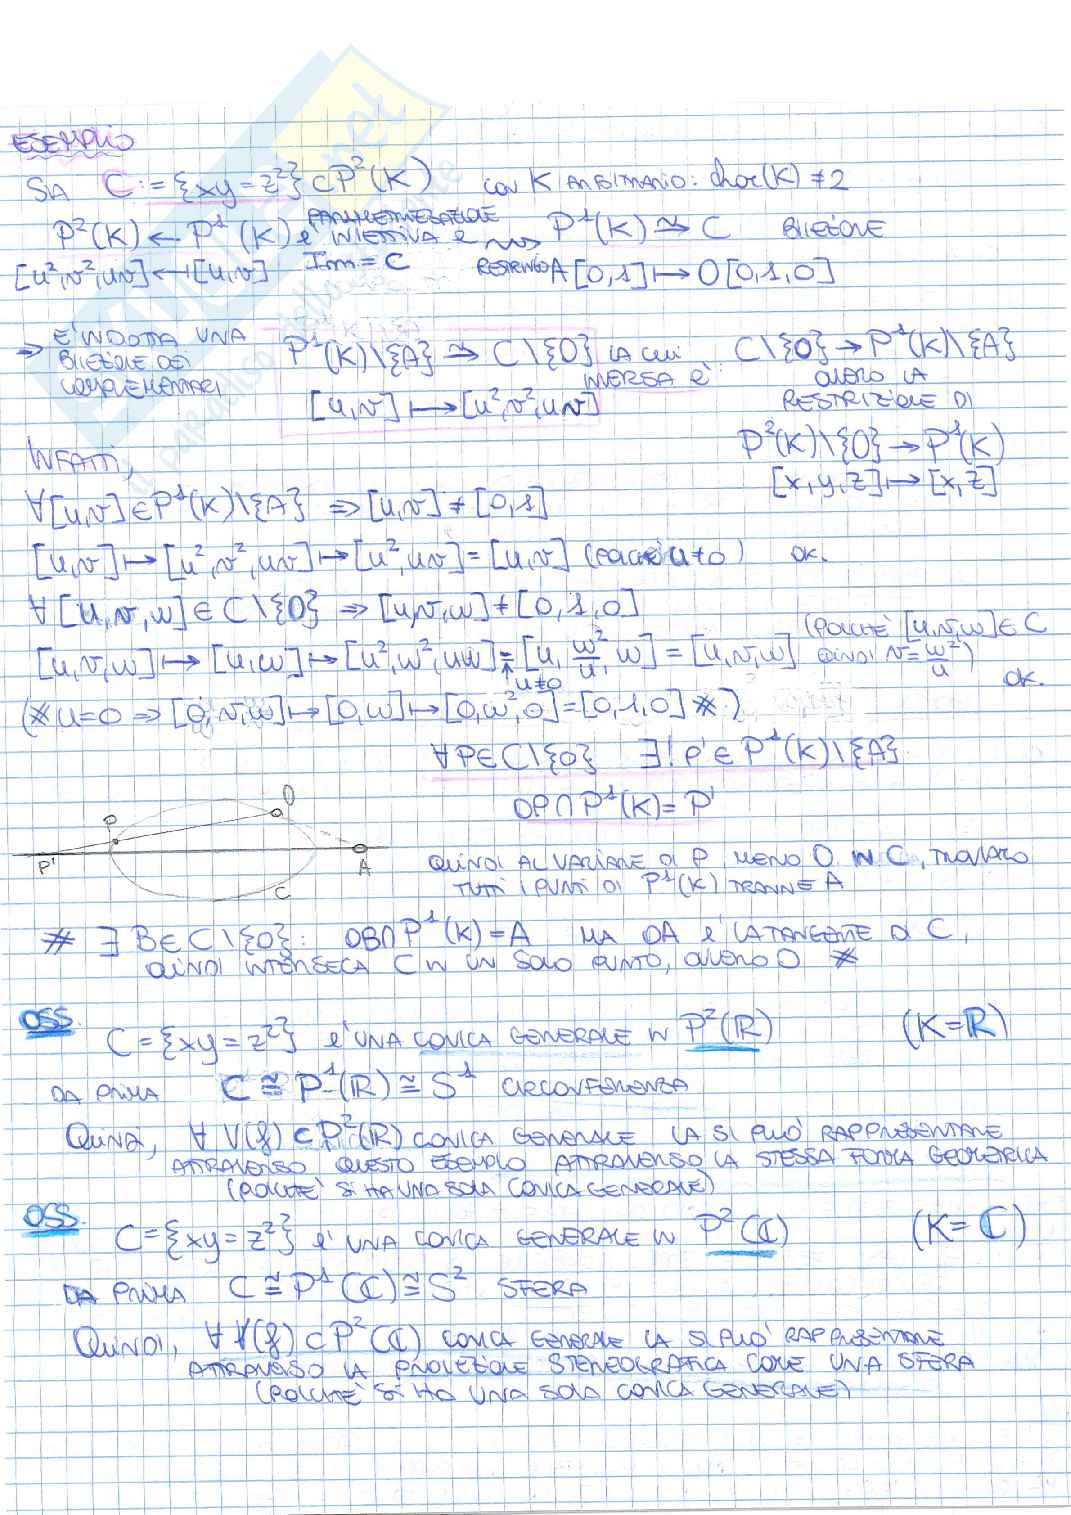 ESEMPIO
SIA C := {xy = z²} ⊂ P²(K) CON K ARBITRARIO: char(K) ≠ 2
P²(K) ← P¹(K) è PARAMETRIZZAZIONE INIETTIVA E Im = C ⇝ P¹(K) ≃ C BIIEZIONE
[u², v², uv] ↤ [u,v] RESTRINGO A [0,1] ↦ O[0,1,0]
⇒ È INDOTTA UNA BIIEZIONE DEI COMPLEMENTARI P¹(K)\{A} ≃ C\{O} LA CUI INVERSA È: C\{O} → P¹(K)\{A}
[u,v] ↦ [u², v², uv] OVVERO LA RESTRIZIONE DI
P²(K)\{O} → P¹(K)
[x,y,z] ↦ [x,z]
INFATTI,
∀[u,v] ∈ P¹(K)\{A} ⇒ [u,v] ≠ [0,1]
[u,v] ↦ [u², v², uv] ↦ [u², uv] = [u,v] (POICHÈ u ≠ 0) OK.
∀ [u,v,w] ∈ C\{O} ⇒ [u,v,w] ≠ [0,1,0]
[u,v,w] ↦ [u,w] ↦ [u², w², uw] = [u, w²/u, w] = [u,v,w] (POICHÈ [u,v,w] ∈ C QUINDI v = w²/u) OK.
↑ u≠0
(※ u=0 ⇒ [0,v,w] ↦ [0,w] ↦ [0,w²,0] = [0,1,0] ※)
∀P∈C\{O} ∃! P' ∈ P¹(K)\{A}
OP ∩ P¹(K) = P'
O
P
P'
A
C
QUINDI AL VARIARE DI P, MENO O IN C, TROVIAMO
TUTTI I PUNTI DI P¹(K) TRANNE A
※ ∃ B∈C\{O}: OB∩P¹(K) = A MA OA è LA TANGENTE DI C,
QUINDI INTERSECA C IN UN SOLO PUNTO, OVVERO O ※
OSS.
C = {xy = z²} è UNA CONICA GENERALE IN P²(ℝ) (K=ℝ)
DA PRIMA C ≅ P¹(ℝ) ≅ S¹ CIRCONFERENZA
QUINDI, ∀ V(f) ⊂ P²(ℝ) CONICA GENERALE LA SI PUÒ RAPPRESENTARE
ATTRAVERSO QUESTO ESEMPIO ATTRAVERSO LA STESSA FORMA GEOMETRICA
(POICHÈ SI HA UNA SOLA CONICA GENERALE)
OSS.
C = {xy = z²} è UNA CONICA GENERALE IN P²(ℂ) (K=ℂ)
DA PRIMA C ≅ P¹(ℂ) ≅ S² SFERA
QUINDI, ∀ V(f) ⊂ P²(ℂ) CONICA GENERALE LA SI PUÒ RAPPRESENTARE
ATTRAVERSO LA PROIEZIONE STEREOGRAFICA COME UNA SFERA
(POICHÈ SI HA UNA SOLA CONICA GENERALE)